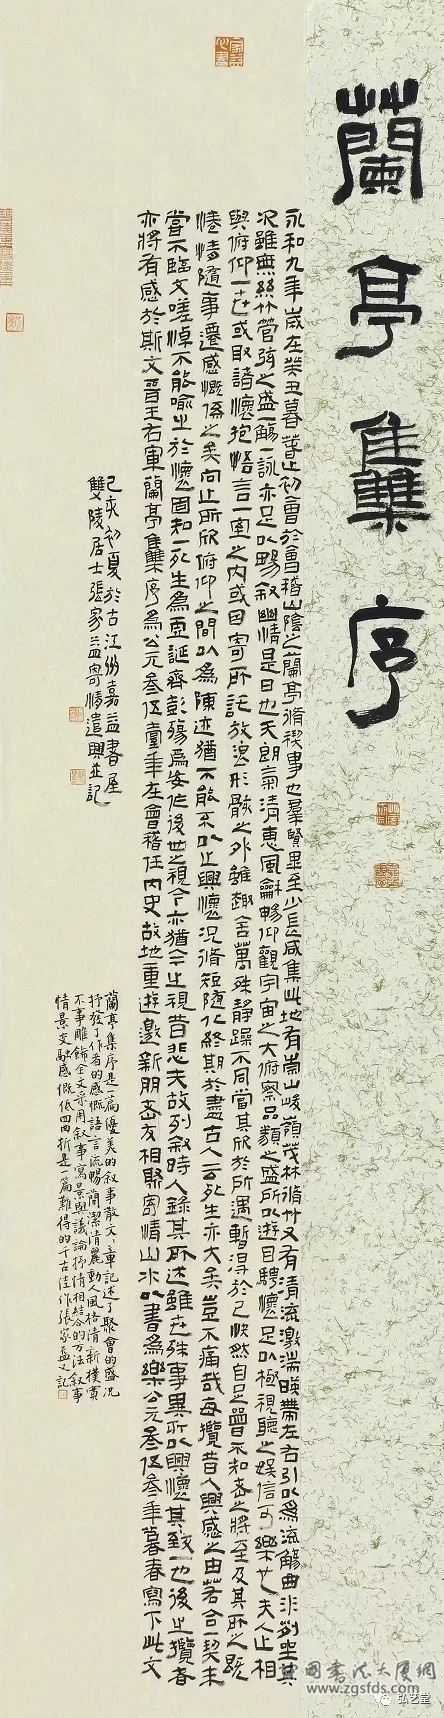 蘭亭集序
永和九年歲在癸丑暮春之初會於會稽山陰之蘭亭脩禊事也羣賢畢至少長咸集此地有崇山峻嶺茂林脩竹又有清流激湍暎帶左右引以為流觴曲水列坐其
次雖無絲竹管弦之盛一觴一詠亦足以暢敘幽情是日也天朗氣清惠風龢暢仰觀宇宙之大俯察品類之盛所以遊目騁懷足以極視聽之娛信可樂也夫人之相
與俯仰一世或取諸懷抱悟言一室之內或因寄所託放浪形骸之外雖趣舍萬殊靜躁不同當其欣於所遇暫得於己怏然自足曾不知老之將至及其所之既
惓情隨事遷感慨係之矣向之所欣俯仰之間以為陳迹猶不能不以之興懷況脩短隨化終期於盡古人云死生亦大矣豈不痛哉每攬昔人興感之由若合一契未
嘗不臨文嗟悼不能喻之於懷固知一死生為虛誕齊彭殤為妄作後世之視今亦猶今之視昔悲夫故列敘時人錄其所述雖世殊事異所以興懷其致一也後之攬者
亦將有感於斯文晉王右軍蘭亭集序為公元叁伍壹年在會稽任內史故地重遊邀新朋老友相聚寄情山水以書為樂公元叁伍叁年暮春寫下此文
己亥初夏於古江州嘉益書屋
雙陵居士張家益寄情遣興並記
蘭亭集序是一篇優美的敘事散文文章記述了聚會的盛況
抒發了作者的感慨語言流暢簡潔清麗動人風格清新樸實
不事雕飾全文采用敘事寫景與議論抒情相結合的方法敘事
情景交融感慨低回曲折是一篇難得的千古佳作張家益又記
中国书法大厦网
www.zgsfds.com
弘艺堂